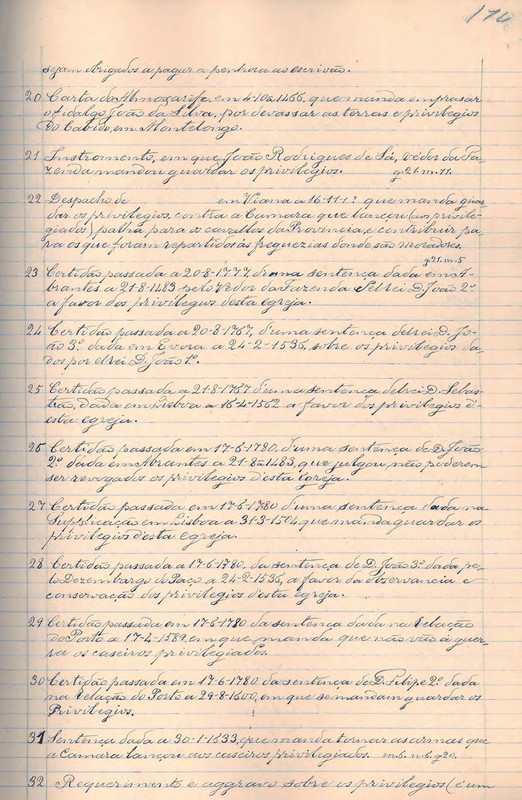 170
sejam obrigados a pagar a penhora ao escrivão.
20 Carta do Almoxarife, em 4-10-1466, que manda emprasar
o fidalgo João da Silva, por devassar as terras e privilegios
do Cabido, em Montelongo.
21 Instromento, em que João Rodrigues de Sá, Védor da Fa-
zenda mandou guardar os privilegios. g. 21. m. 11.
22 Despacho de em Viana a 16-11-1 ? que manda guar
dar os privilegios, contra a Camara que lançou (aos privile-
giados) palha para os cavallos da Provincia, e contribuir pa-
ra os que foram repartidos ás freguezias donde são moradores.
g. 21. m. 5
23 Certidão passada a 20-8-1777 d'uma sentença dada em A-
brantes a 21-8-1483 pelo Védor da Fazenda d'elrei D. João 2º
a favor dos privilegios d'esta Igreja.
24 Certidão passada a 20-8-1767, d'uma sentença d'elrei D. Jo-
ão 3º dada em Evora a 24-2-1536, sobre os privilegios da-
dos por elrei D. João 1º.
25 Certidão passada a 21-8-1767 d'uma sentença d'elrei D. Sebas-
tião, dada em Lisboa a 16-4-1562 a favor dos privilegios d'-
esta egreja.
26 Certidão passada em 17-6-1780, d'uma sentença de D. João
2º dada em Abrantes a 21-8-1483, que julgou não poderem
ser revogados os privilegios d'esta Igreja.
27 Certidão passada em 17-6-1780 d'uma sentença dada na
Supplicação em Lisboa a 31-3-1504 que manda guardar os
privilegios d'esta egreja.
28 Certidão passada a 17-6-1780, da sentença de D. João 3º dada, pe-
lo Dezembargo do Paço, a 24-2-1536, a favor da observancia e
conservação dos privilegios d'esta Igreja.
29 Certidão passada em 17-6-1780 da sentença dada na Relação
do Porto a 17-4-1589, em que manda que não vão á guer-
ra os caseiros privilegiados.
30 Certidão passada em 17-6-1780 da sentença de D. Filipe 2º dada
na Relação do Porto a 29-8-1600, em que se mandam guardar os
Privilegios.
31 Sentença dada a 30-1-1633, que manda tornar as armas que
a Camara lançou aos caseiros privilegiados. m. 6. n. 6. g. 20.
32 Requerimento e aggravo sobre os privilegios (é um